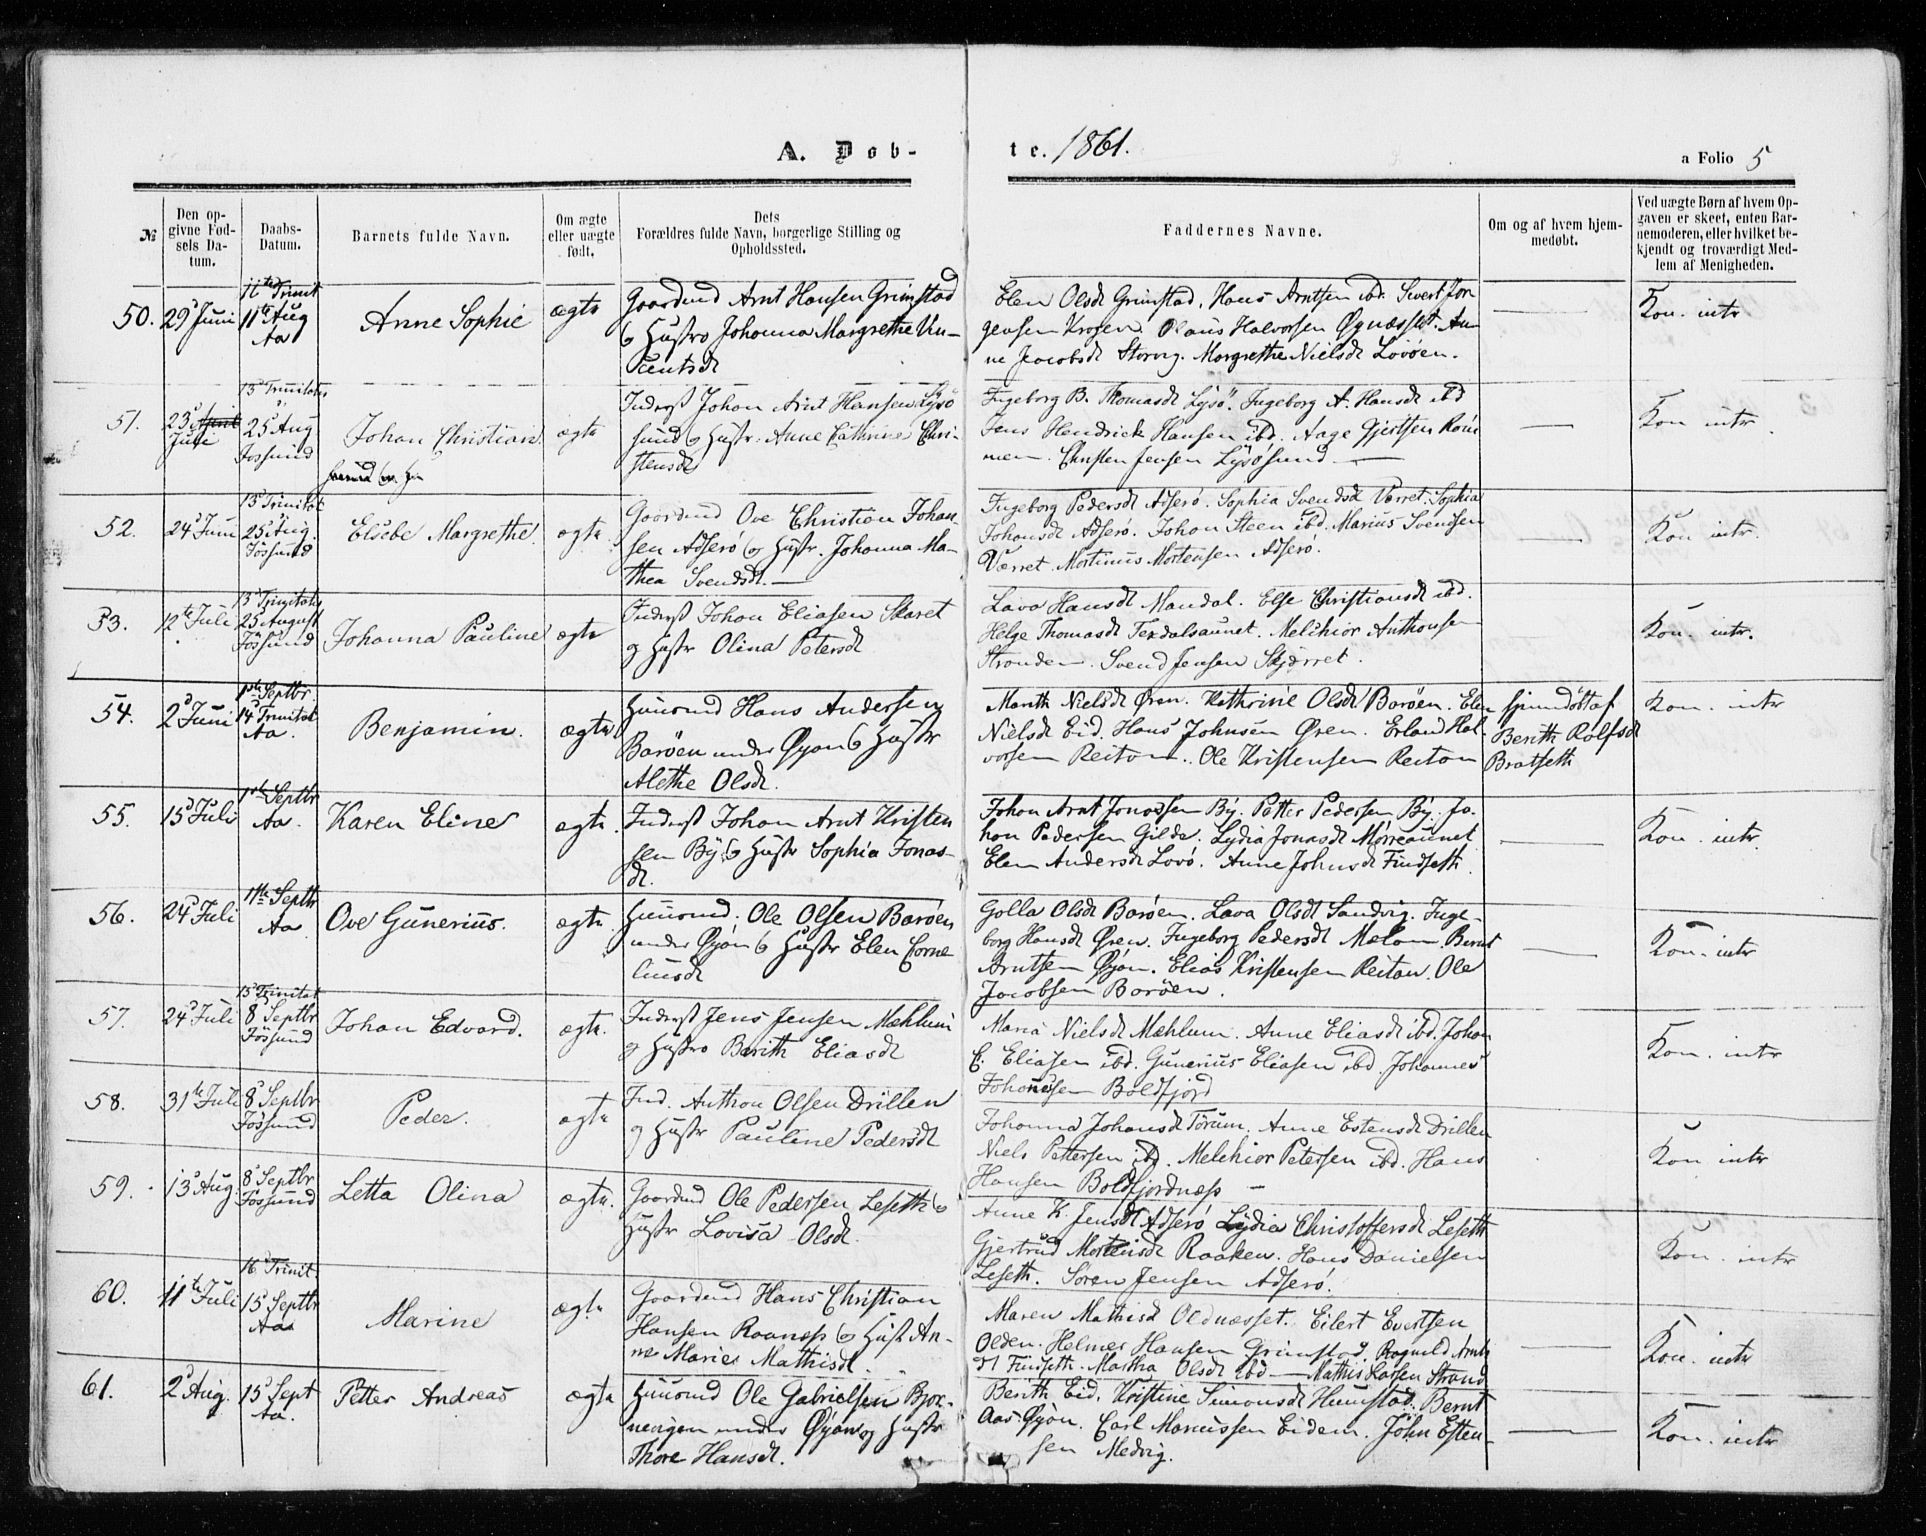 A. Døb-
te. 1861.
a Folio 5
№
Den op-
givne Fød-
sels Da-
tum.
Daabs-
Datum.
Barnets fulde Navn.
Om ægte
eller uægte
født.
Dets
Forældres fulde Navn, borgerlige Stilling og
Opholdssted.
Faddernes Navne.
Om og af hvem hjem-
medøbt.
Ved uægte Børn af hvem Op-
gaven er skeet, enten Bar-
nemoderen, eller hvilket be-
kjendt og troværdigt Med-
lem af Menigheden.
50.
29d Juni
11te Trinit
11te Aug
Aa
Anne Sophie
ægte
Gaardmd Arnt Hansen Grimstad
og Hustro Johanna Margrethe Vin-
centsdt
Elen Olsdt Grimstad. Hans Arntsen ibd. Sivert Jør
gensen Krogen. Olaus Halvorsen Øynæsset. An-
ne Jacobsdt Storvig. Margrethe Nielsdt Lovøen.
Kon. intr
51.
23d April
Juli
13d Trinitatis
25 Aug
Jøssund
Johan Christian
ægte
Inderst Johan Arnt Hansen Lysø
sund og Hustr. Anne Cathrine Chri-
stensdt
Ingeborg B. Thomasdt Lysø. Ingeborg A. Hansdt ibd
Jens Hendrick Hansen ibd. Aage Gjertsen Røm
men. Christen Jensen Lysøsund
Kon intr
52.
24d Juni
13d Trinitat
25 Aug.
Jøssund
Elsebe Margrethe.
ægte
Gaardmd Ove Christian Johan-
sen Adserø og Hustr. Johanna Ma-
thea Svendsdt.
Ingeborg Pedersdt Adserø. Sophia Svendsdt Værret. Sophia
Johansdt Adserø. Johan Steen ibd. Marius Svendsen
Værret. Martinus Mortensen Adserø.
Kon intr.
53.
12te Juli
13d Trinitatis
25 August
Jøssund
Johanna Pauline
ægte
Inderst Johan Eliasen Skaret
og Hustr Olina Petersdt
Lava Hansdt Mandal. Else Christiansdt ibd.
Helge Thomasdt Texdalsaunet. Melchior Anthonsen
Stranden. Svend Jensen Skjærret.
Kon. intr.
54.
2d Juni
1ste Septbr
14d Trinitat
Aa.
Benjamin.
ægte
Huusmd Hans Andersen
Barøen under Øyan og Hustr
Alethe Olsdt.
Marith Nielsdt Øren. Kathrine Olsdt Barøen. Elen
Nielsdt Eid. Hans Johnsen Øren. Erland Hal-
vorsen Reitan. Ole Kristensen Reitan
hjemdøbt af
Berith Rolfsdt
Bratseth
Kon. intr
55.
15d Juli
1ste Septbr
Aa.
Karen Eline
ægte.
Inderst Johan Arnt Kristen
sen By og Hustr Sophia Jonas-
dt.
Johan Arnt Jonassen By. Petter Pedersen By. Jo-
han Pedersen Gilde. Lydia Jonasdt Mørreaunet
Elen Andersdt Lovø. Anne Johnsdt Findseth
Kon. intr.
56.
24d Juli
1ste Septbr
Aa
Ove Gunerius.
ægte.
Huusmd. Ole Olsen Barøen
under Øyan og Hustr Elen Corne
liusdt
Golla Olsdt Barøen. Lava Olsdt Sandvig. Inge-
borg Hansdt Øren. Ingeborg Pedersdt Mælan. Bernt
Arntsen Øyan. Elias Kristensen Reitan. Ole
Jacobsen Barøen.
Kon. intr
57.
24d Juli
15d Trinitat
8 Septbr
Jøssund
Johan Edvard.
ægte.
Inderst Jens Jensen Mæhlum
og Hustro Berith Eliasdt
Maria Nielsdt Mæhlum. Anne Eliasdt ibd. Johan
E. Eliasen ibd. Gunerius Eliasen ibd. Johannes
Johannesen Boldfjord
Kon. intr
58.
31te Juli
8d Septbr
Jøssund
Peder.
ægte
Ind. Anthon Olsen Drillen
og Hustr Pauline Pedersdt
Johanna Johansdt Tørum. Anne Estensdt Drillen
Niels Pettersen ibd. Melchior Petersen ibd. Hans
Hansen Boldfjordnæss
Kon intr
59.
13d Aug.
8d Septbr
Jøssund
Letta Olina
ægte.
Gaardmd Ole Pedersen Leseth og
Hustr Lovisa Olsdt.
Anne K. Jensdt Adserø Lydia Christoffersdt Leseth
Gjertrud Mortensdt Raaken. Hans Danielsen
Leseth. Søren Jensen Adserø.
Kon. intr
60.
11te Juli
16d Trinit.
15 Septbr
Aa
Marine
ægte
Gaardmd Hans Christian
Hansen Raanæss og Hustr An-
ne Marie Mathisdt
Maren Mathisd Oldnæsset. Eilert Evertsen
Olden. Helmer Hansen Grimstad. Ragnild Arnts
dt Findseth. Martha Olsdt ibd — Mathis Larsen Strand
Kon. intr
61.
2d Aug.
15d Sept
Aa.
Petter Andreas
ægte
Huusmd Ole Gabrielsen Bjør-
nevigen under Øyan og Hustr
Thore Hansdt.
Berith Eid. Kristine Simonsdt Humstad. Bernt
Aas. Øyan. Carl Marcussen Eidem. John Esten-
sen Medvig.
Kon. intr